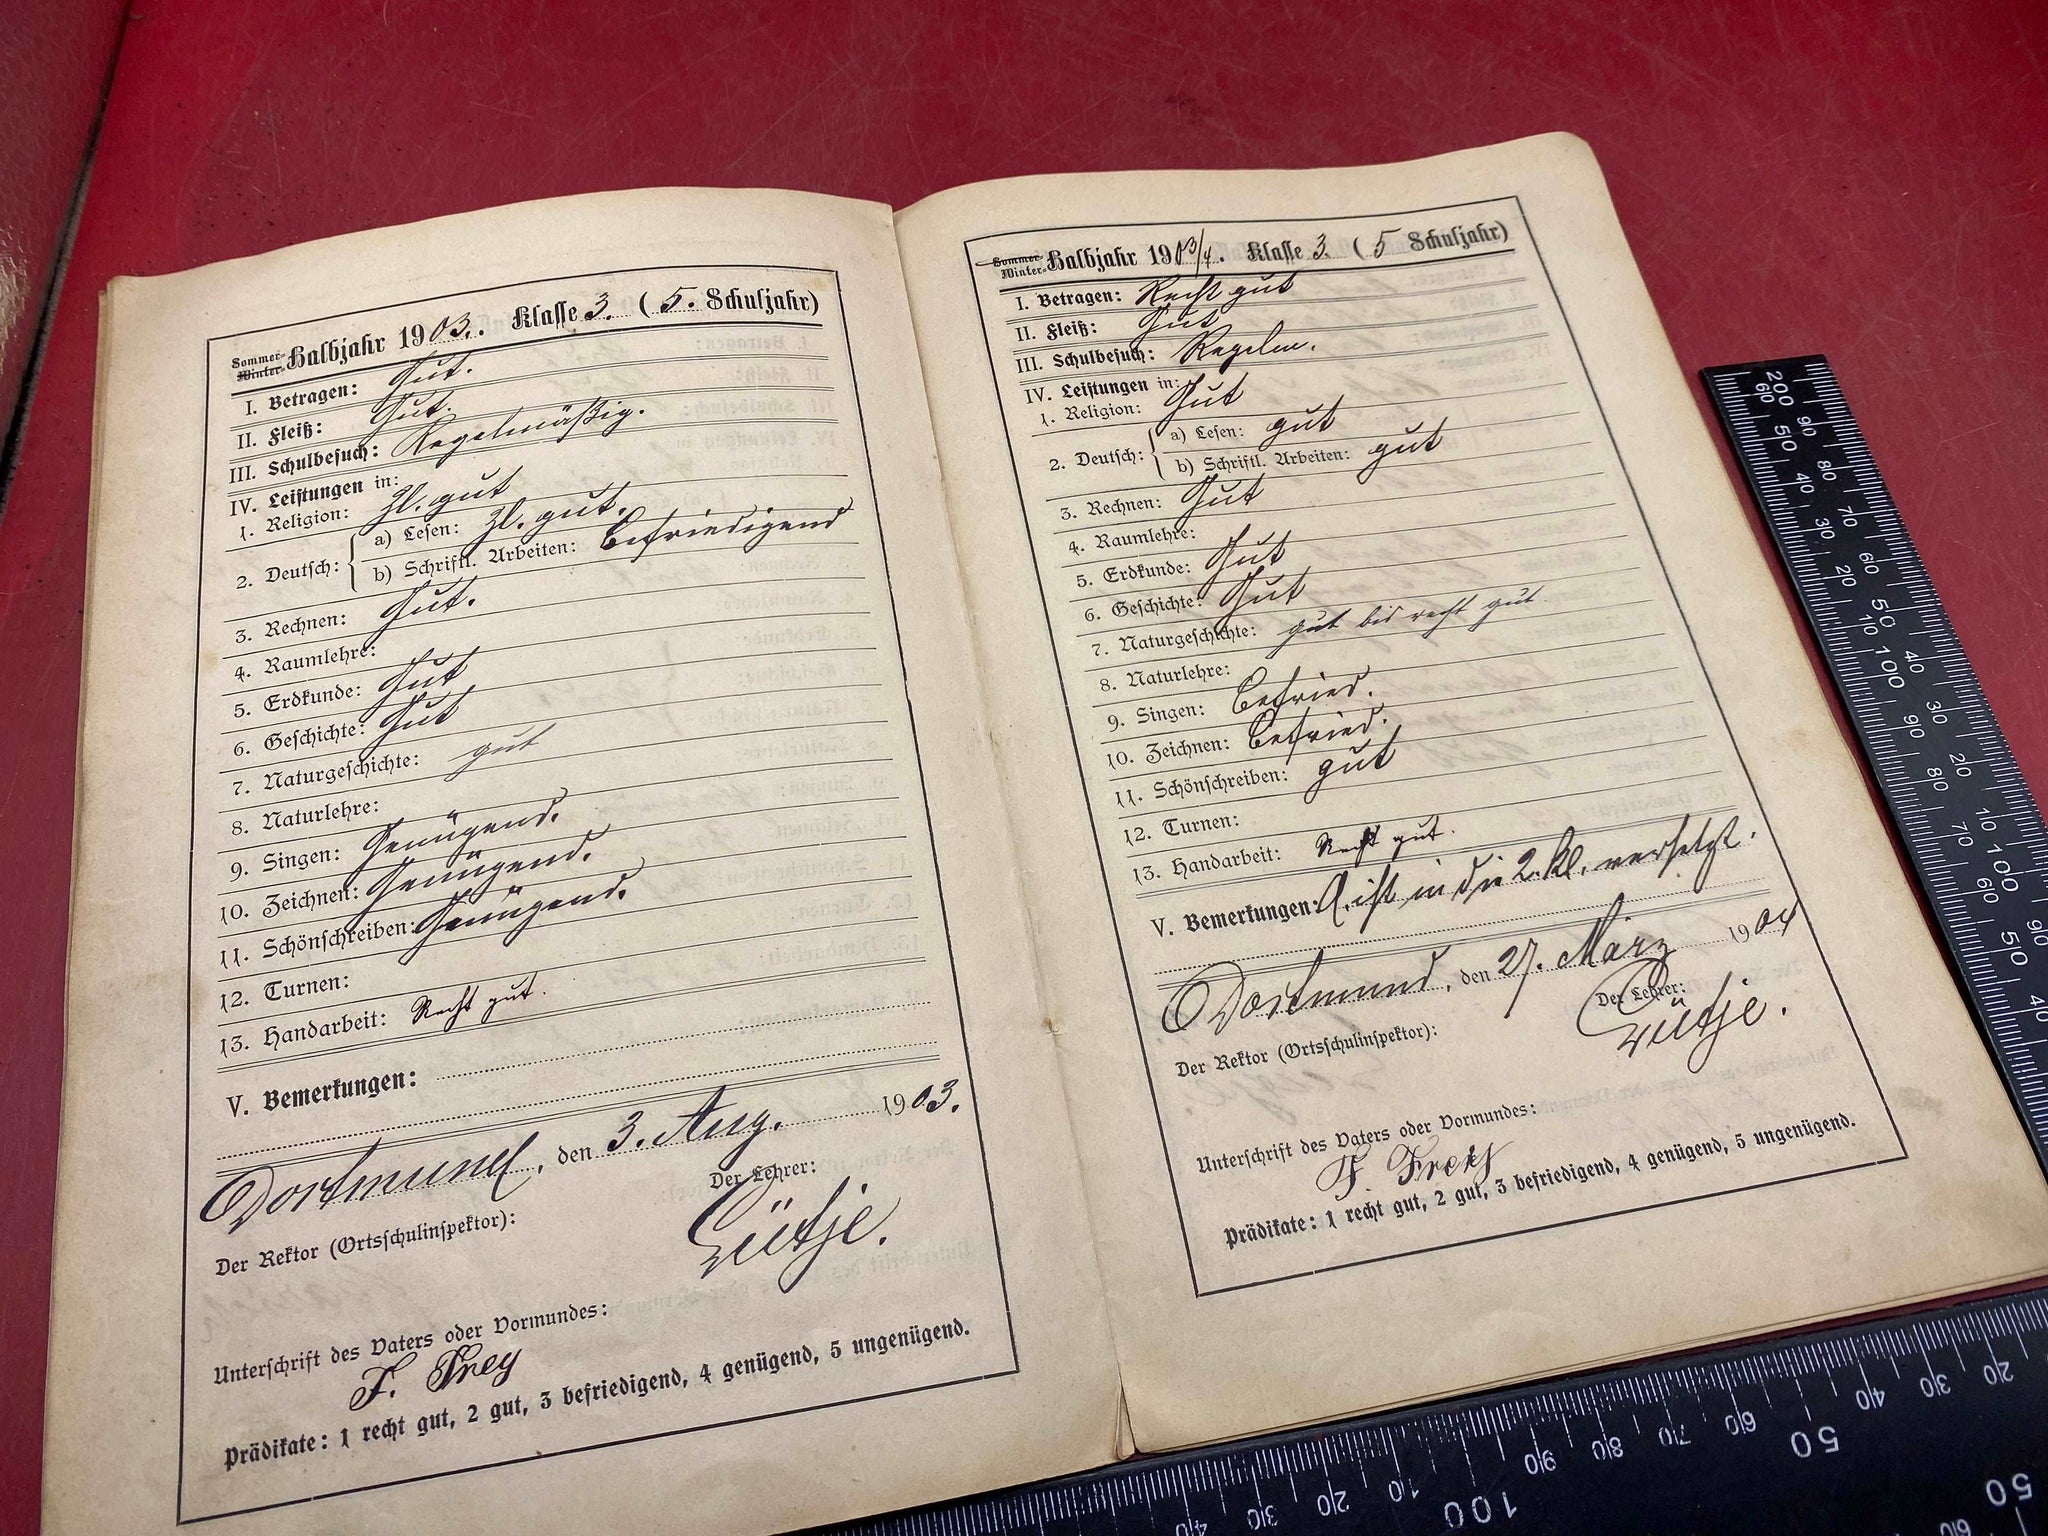 Sommer-
Winter- Halbjahr 1903. Klasse 3. (5. Schuljahr)
I. Betragen: Gut.
II. Fleiß: Gut.
III. Schulbesuch: Regelmäßig.
IV. Leistungen in:
1. Religion: Zl. gut
2. Deutsch: a) Lesen: Zl. gut.
b) Schriftl. Arbeiten: Befriedigend
3. Rechnen: Gut.
4. Raumlehre:
5. Erdkunde: Gut
6. Geschichte: Gut
7. Naturgeschichte: gut
8. Naturlehre:
9. Singen: Genügend.
10. Zeichnen: Genügend.
11. Schönschreiben: Genügend.
12. Turnen:
13. Handarbeit: Recht gut.
V. Bemerkungen:
Dortmund, den 3. Aug. 1903.
Der Lehrer:
Lütje.
Der Rektor (Ortsschulinspektor):
Unterschrift des Vaters oder Vormundes:
F. Frey
Prädikate: 1 recht gut, 2 gut, 3 befriedigend, 4 genügend, 5 ungenügend.
Sommer-
Winter- Halbjahr 1903/4. Klasse 3. (5 Schuljahr)
I. Betragen: Recht gut
II. Fleiß: Gut
III. Schulbesuch: Regelm.
IV. Leistungen in:
1. Religion: Gut
2. Deutsch: a) Lesen: gut
b) Schriftl. Arbeiten: gut
3. Rechnen: Gut
4. Raumlehre:
5. Erdkunde: Gut
6. Geschichte: Gut
7. Naturgeschichte: gut bis recht gut.
8. Naturlehre:
9. Singen: Befried.
10. Zeichnen: Befried.
11. Schönschreiben: gut
12. Turnen:
13. Handarbeit: Recht gut.
V. Bemerkungen: ist in die 2. Kl. versetzt.
Dortmund, den 27. März 1904
Der Lehrer:
Lütje.
Der Rektor (Ortsschulinspektor):
Unterschrift des Vaters oder Vormundes:
F. Frey
Prädikate: 1 recht gut, 2 gut, 3 befriedigend, 4 genügend, 5 ungenügend.